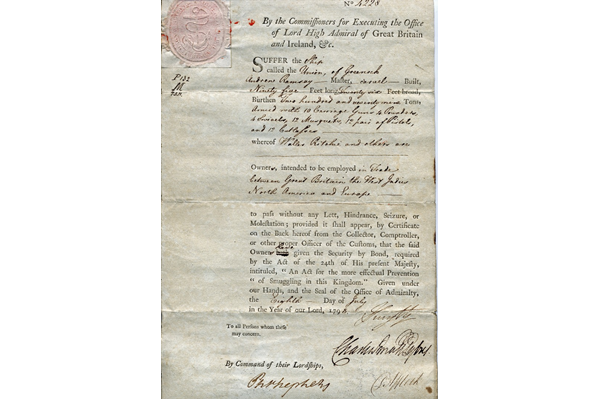 No 4228
By the Commissioners for Executing the Office
of Lord High Admiral of Great Britain
and Ireland, &c.
SUFFER the Ship
called the Union, of Greenock
Andrew Ramsay Master, Built,
Ninety five Feet long Twenty six Feet broad,
Burthen Two hundred and seventy nine Tons
Armed with 10 Carriage Guns 4 Pounders,
4 Swivels, 12 Musquets, 12 pair of Pistols,
and 12 Cutlasses
whereof Walter Ritchie and others are
Owners, intended to be employed in Trade
between Great Britain the West Indies
North America and Europe
to pass without any Lett, Hindrance, Seizure, or
Molestation; provided it shall appear, by Certificate
on the Back hereof from the Collector, Comptroller,
or other proper Officer of the Customs, that the said
Owners have given the Security by Bond, required
by the Act of the 24th of His present Majesty,
intituled, "An Act for the more effectual Prevention
"of Smuggling in this Kingdom." Given under
our Hands, and the Seal of the Office of Admiralty,
the Eighth Day of July
in the Year of our Lord, 179
To all Persons whom these
may concern.
By Command of their Lordships,